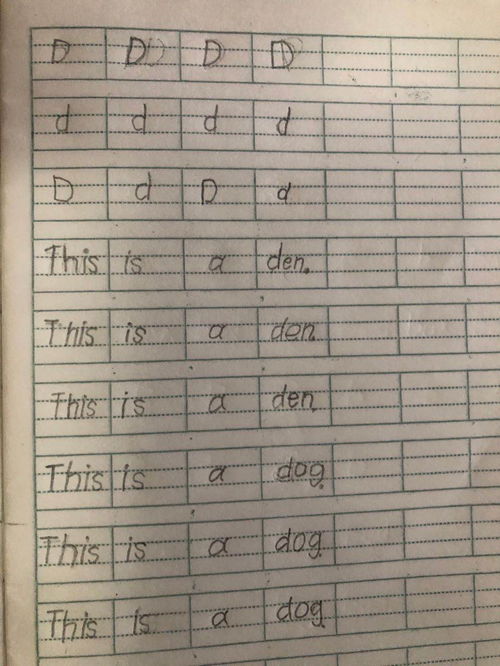 D D D D
d d d d
D d D d
This is a den.
This is a den.
This is a den.
This is a dog.
This is a dog.
This is a dog.